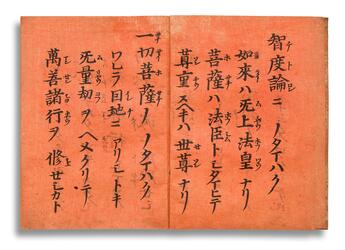 智度論ニノタマハク
如來ハ无上法皇ナリ
菩薩ハ法臣トシタマヒテ
尊重スヘキハ世尊ナリ
一切菩薩ノノタマハク
ワレラ因地ニアリシトキ
无量劫ヲヘメクリテ
萬善諸行ヲ修セシカト